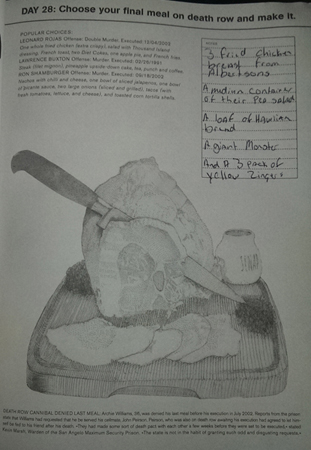 DAY 28: Choose your final meal on death row and make it.
POPULAR CHOICES:
LEONARD ROJAS Offense: Double Murder. Executed: 12/04/2002
One whole fried chicken (extra crispy), salad with Thousand Island
dressing, French toast, two Diet Cokes, one apple pie, and French fries.
LAWRENCE BUXTON Offense: Murder. Executed: 02/26/1991
Steak (filet mignon), pineapple upside-down cake, tea, punch and coffee.
RON SHAMBURGER Offense: Murder. Executed: 09/18/2002
Nachos with chilli and cheese, one bowl of sliced jalapenos, one bowl
of picante sauce, two large onions (sliced and grilled), tacos (with
fresh tomatoes, lettuce, and cheese), and toasted corn tortilla shells.
3 fried chicken
breast from
Albertsons
A medium container
of their Pea salad
A loaf of Hawiian
bread
A giant Monster
And A 3 pack of
yellow Zingers
DEATH ROW CANNIBAL DENIED LAST MEAL: Archie Williams, 36, was denied his last meal before his execution in July 2002. Reports from the prison
state that Williams had requested that he be served his cellmate, John Person. Person, who was also on death row awaiting his execution had agreed to
be fed to his friend after his death. «They had made some sort of death pact with each other a few weeks before they were set to be executed,» stated
Marsh, Warden of the San Angelo Maximum Security Prison. «The state is not in the habit of granting such odd and disgusting requests.»